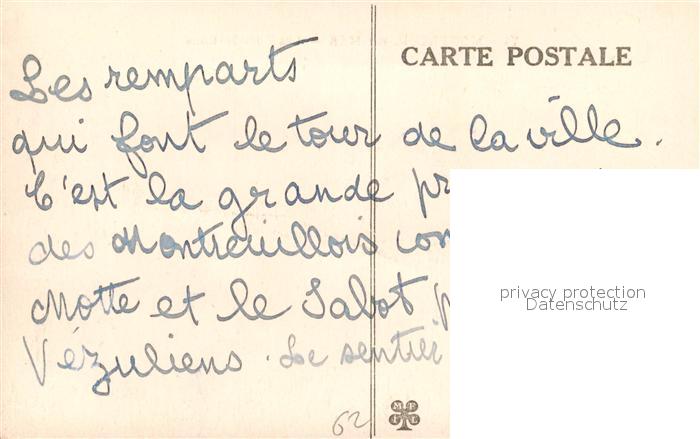 CARTE POSTALE
Les remparts
qui font le tour de la ville.
C'est la grande pr
des Montreuillois com
Motte et le Sabot p
Vézuliens. Le sentier
privacy protection
Datenschutz
62